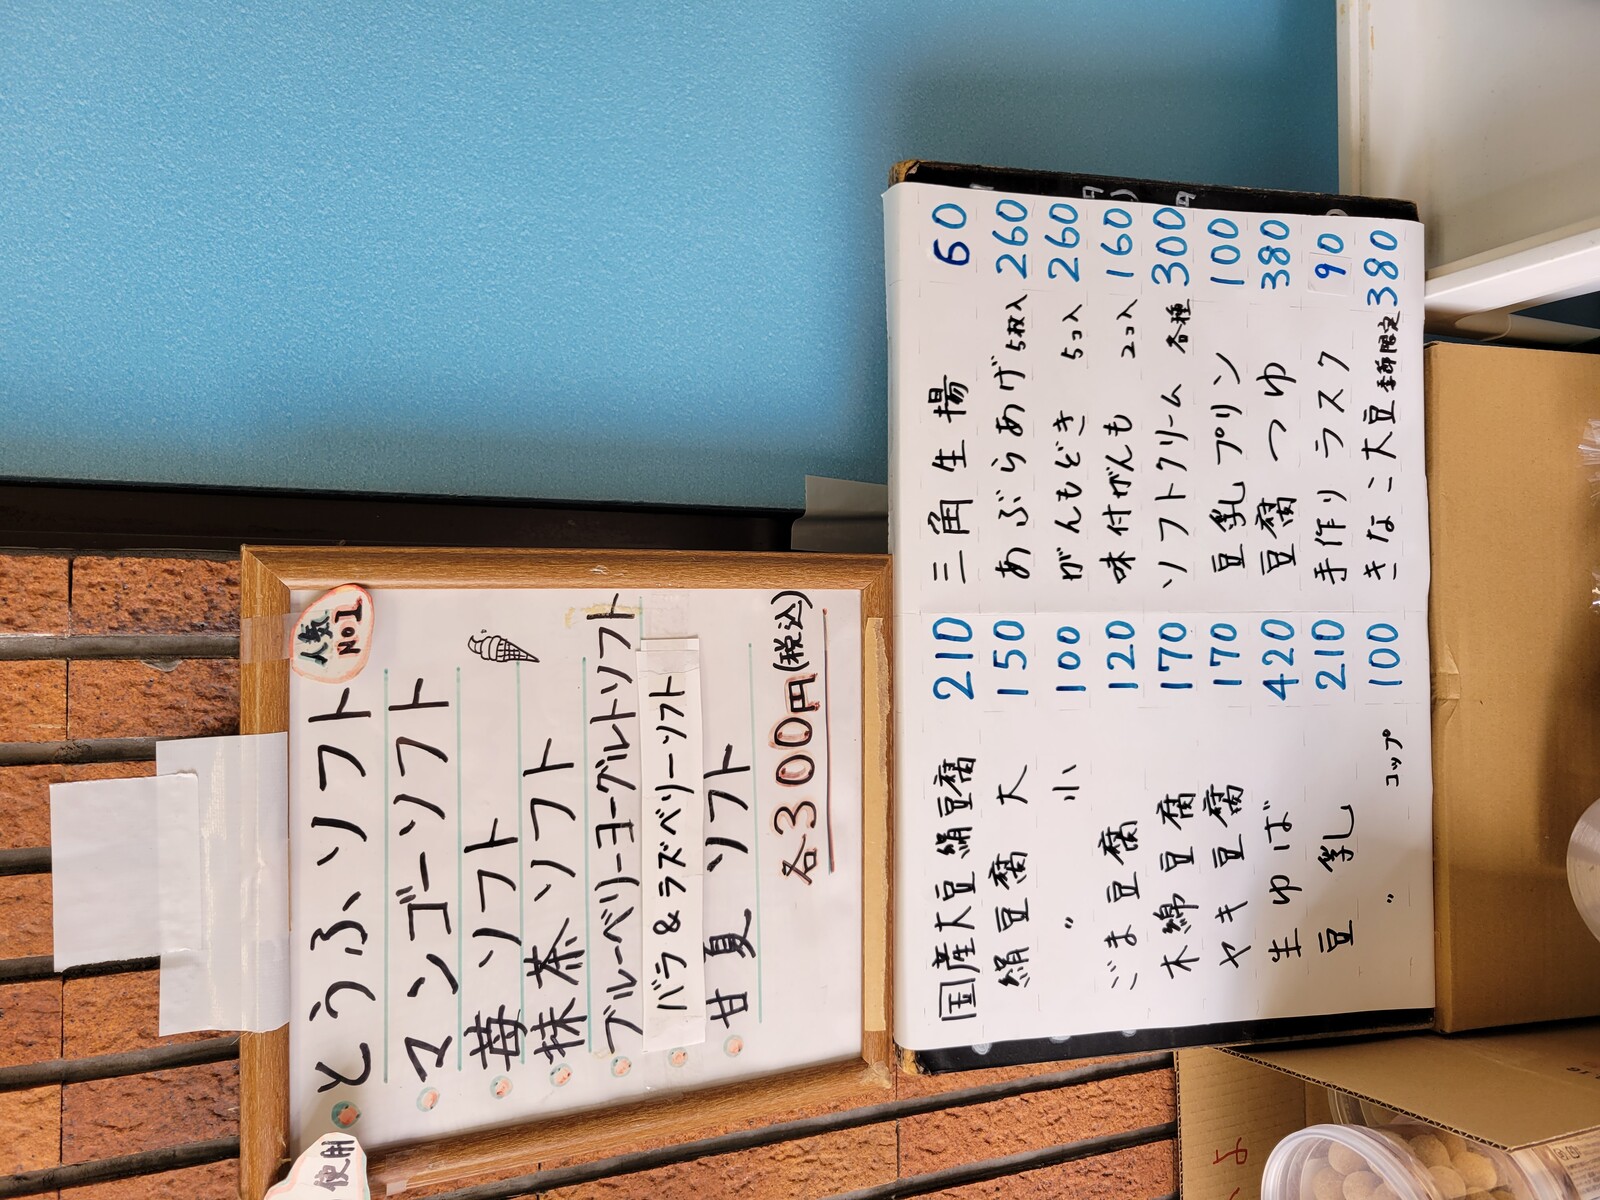 人気
No1
使用
とうふソフト
マンゴーソフト
苺ソフト
抹茶ソフト
ブルーベリーヨーグルトソフト
バラ&ラズベリーソフト
甘夏ソフト
各300円(税込)
国産大豆絹豆腐 210
絹豆腐 大 150
〃 小 100
ごま豆腐 120
木綿豆腐 170
ヤキ豆腐 170
生ゆば 420
豆乳 210
〃 コップ 100
三角生揚 60
あぶらあげ 5枚入 260
がんもどき 5コ入 260
味付がんも 2コ入 160
ソフトクリーム 各種 300
豆乳プリン 100
豆腐つゆ 380
手作りラスク 90
きなこ大豆 季節限定 380